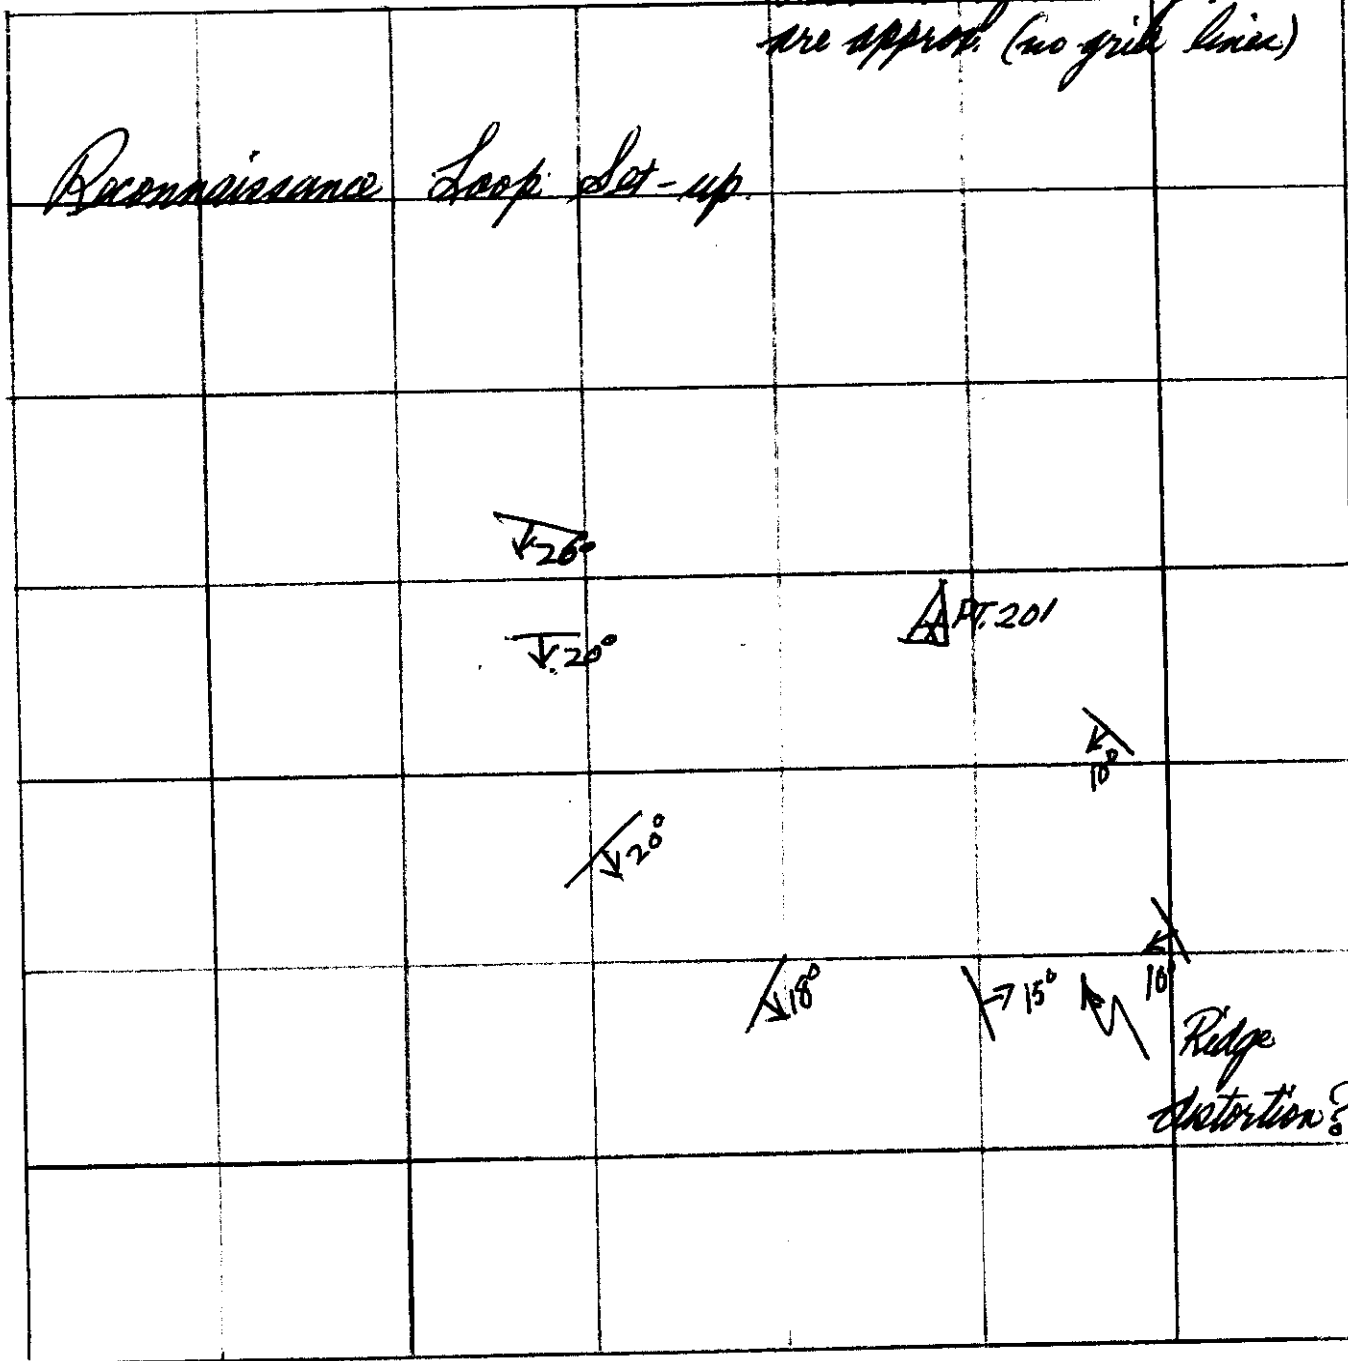 are approx. (no grid lines)
Reconnaissance Loop Set-up.
26°
20°
PT. 201
10°
20°
18°
15°
10°
Ridge
distortion?